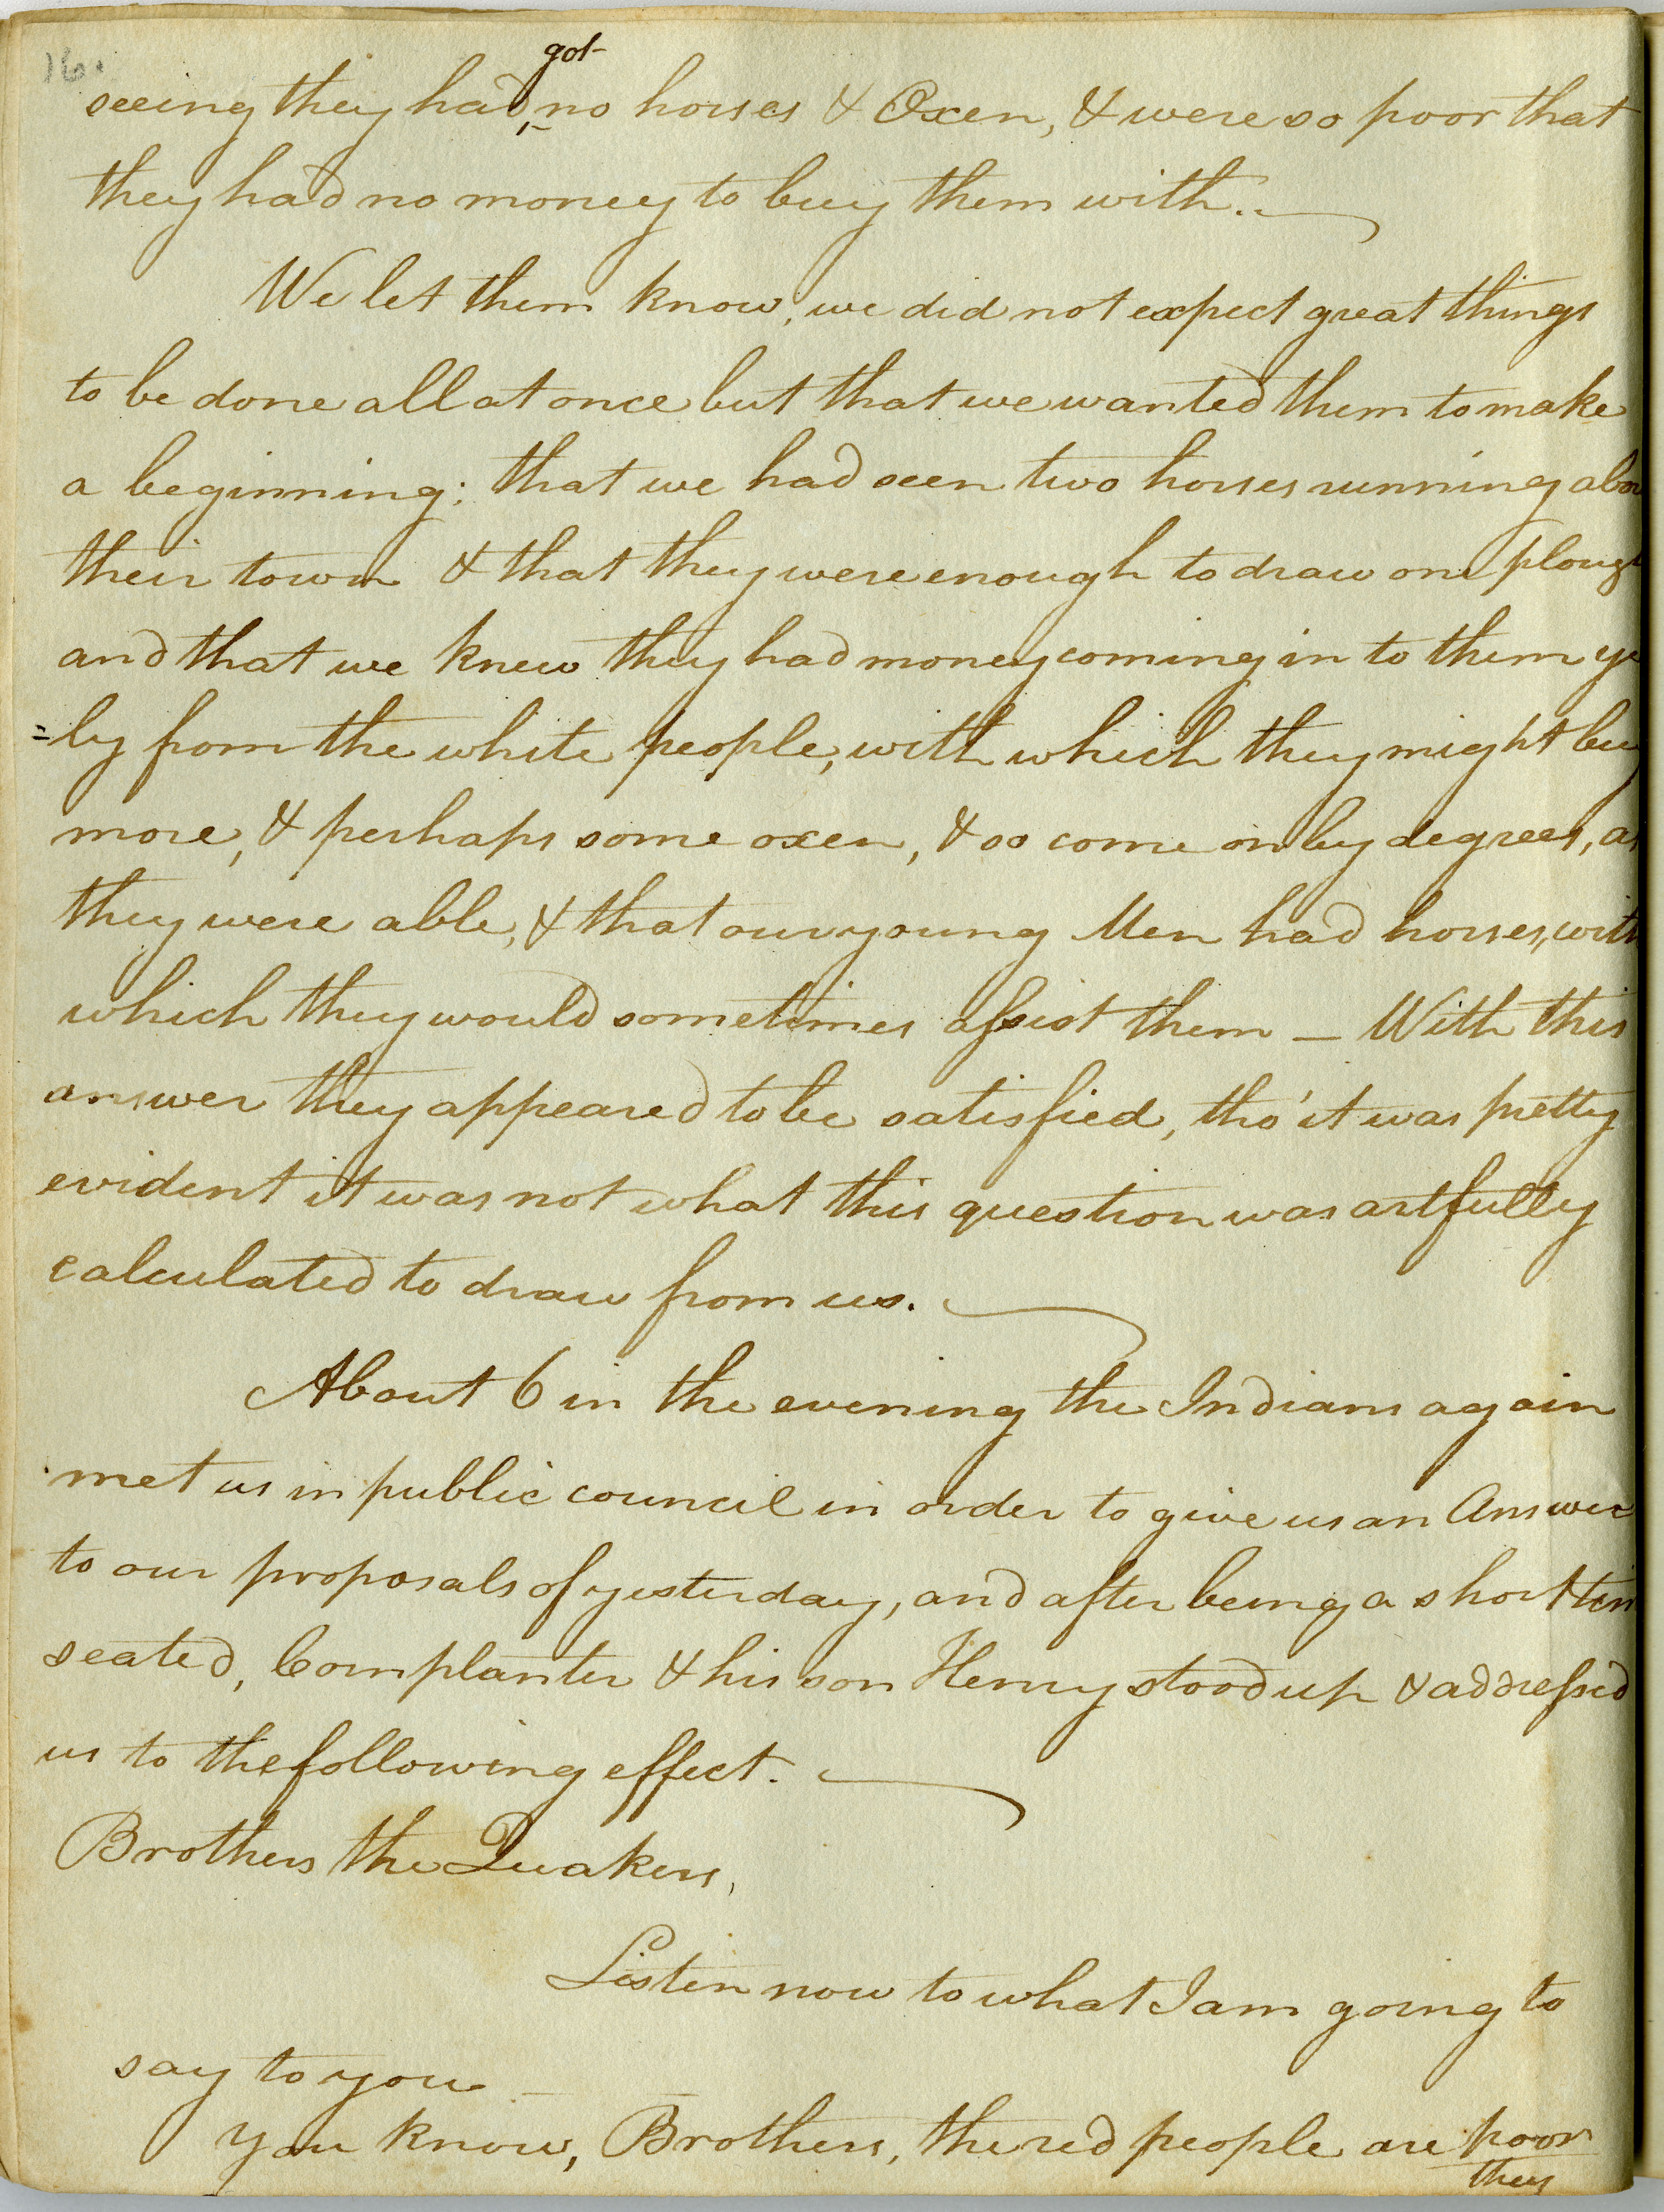 16.
got
seeing they had no horses & Oxen, & were so poor that
they had no money to buy them with.
We let them know, we did not expect great things
to be done all at once but that we wanted them to make
a beginning; that we had seen two horses running abou
their town & that they were enough to draw one plough
and that we knew they had money coming in to them ye
=ly from the white people, with which they might buy
more, & perhaps some oxen, & so come on by degrees, as
they were able, & that our young Men had horses, with
which they would sometimes assist them — With this
answer they appeared to be satisfied, tho' it was pretty
evident it was not what this question was artfully
calculated to draw from us.
About 6 in the evening the Indians again
met us in public council in order to give us an Answer
to our proposals of yesterday, and after being a short tim
seated, Cornplanter & his son Henry stood up & addressed
us to the following effect.
Brothers the Quakers,
Listen now to what I am going to
say to you —
You know, Brothers, the red people are poor
they